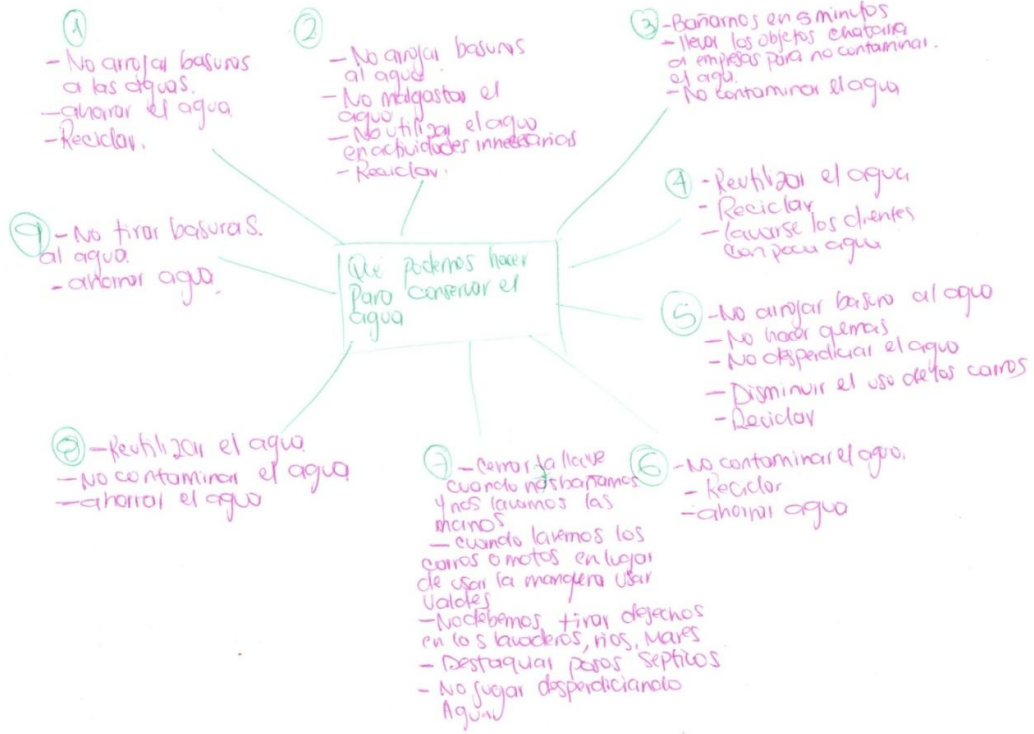 Qué podemos hacer
Para conservar el
agua
1
- No arrojar basuras
a las aguas.
- ahorrar el agua
- Reciclar.
2
- No arrojar basuras
al agua.
- No malgastar el
agua
- No utilizar el agua
en actividades innecesarias
- Reciclar.
3 - Bañarnos en 5 minutos
- llevar los objetos chatarra
a empresas para no contaminar
el agu.
- No contaminar el agua
4 - Reutilizar el agua
- Reciclar
- lavarse los dientes
con poca agua
5 - No arrojar basura al agua
- No hacer quemas
- No desperdiciar el agua
- Disminuir el uso de los carros
- Reciclar
6 - No contaminar el agua.
- Reciclar
- ahorrar agua
7 - Cerrar la llave
cuando nos bañamos
y nos lavamos las
manos
- cuando lavemos los
carros o motos en lugar
de usar la manguera usar
valdes
- No debemos tirar desechos
en los lavaderos, rios, Mares
- Destaquiar posos septicos
- No jugar desperdiciando
Agua
8 - Reutilizar el agua
- No contaminar el agua
- ahorrar el agua
9 - No tirar basuras.
al agua.
- ahorrar agua